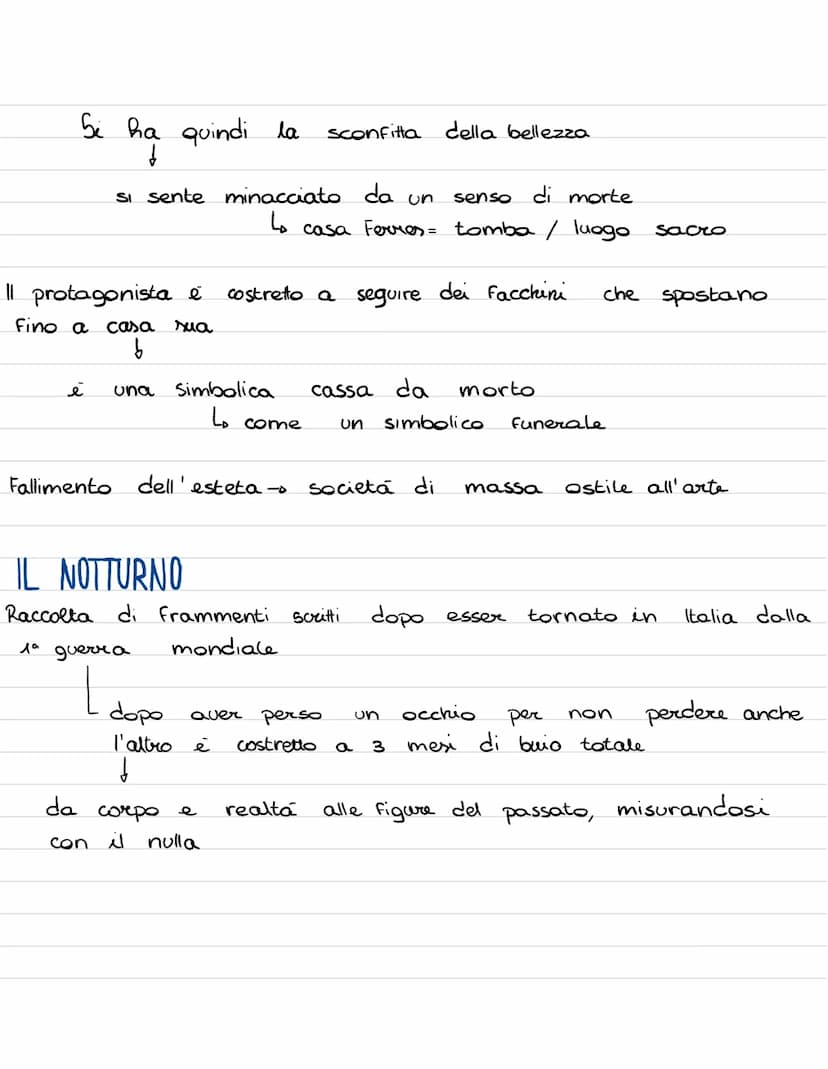 Si ha quindi la sconfitta della bellezza
↓
si sente minacciato da un senso di morte
↳ casa Ferres = tomba / luogo sacro
Il protagonista è costretto a seguire dei facchini che spostano
fino a casa sua
↓
è una simbolica cassa da morto
↳ come un simbolico funerale
Fallimento dell'esteta → società di massa ostile all'arte
IL NOTTURNO
Raccolta di frammenti scritti dopo esser tornato in Italia dalla
1ª guerra mondiale
dopo aver perso un occhio per non perdere anche
l'altro è costretto a 3 mesi di buio totale
↓
da corpo e realtà alle figure del passato, misurandosi
con il nulla